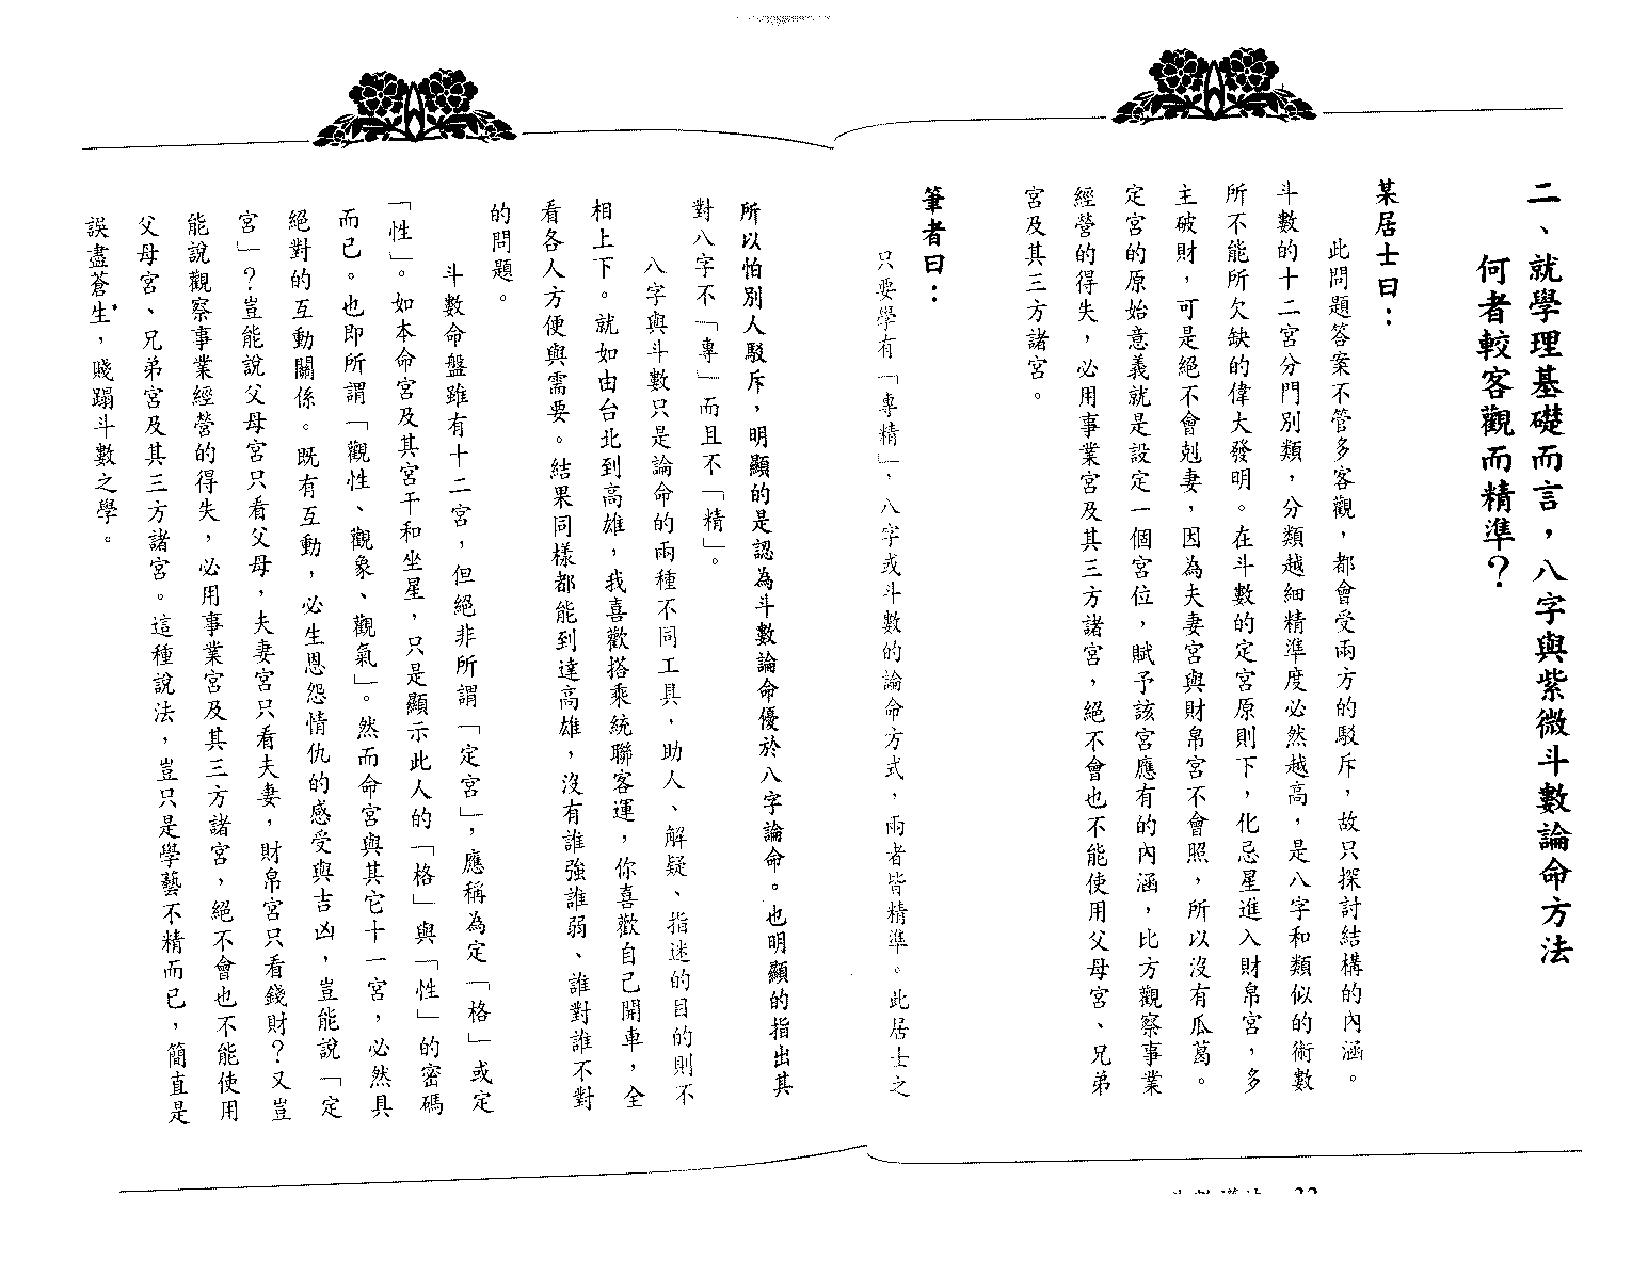 二、就學理基礎而言，八字與紫微斗數論命方法
何者較客觀而精準？
某居士曰：
此問題答案不管多客觀，都會受兩方的駁斥，故只探討結構的內涵。
斗數的十二宮分門別類，分類越細精準度必然越高，是八字和類似的術數
所不能所欠缺的偉大發明。在斗數的定宮原則下，化忌星進入財帛宮，多
主破財，可是絕不會剋妻，因為夫妻宮與財帛宮不會照，所以沒有瓜葛。
定宮的原始意義就是設定一個宮位，賦予該宮應有的內涵，比方觀察事業
經營的得失，必用事業宮及其三方諸宮，絕不會也不能使用父母宮、兄弟
宮及其三方諸宮。
筆者曰：
只要學有「專精」，八字或斗數的論命方式，兩者皆精準。此居士之
所以怕別人駁斥，明顯的是認為斗數論命優於八字論命。也明顯的指出其
對八字不「專」而且不「精」。
八字與斗數只是論命的兩種不同工具，助人、解疑、指迷的目的則不
相上下。就如由台北到高雄，我喜歡搭乘統聯客運，你喜歡自己開車，全
看各人方便與需要。結果同樣都能到達高雄，沒有誰強誰弱、誰對誰不對
的問題。
斗數命盤雖有十二宮，但絕非所謂「定宮」，應稱為定「格」或定
「性」。如本命宮及其宮干和坐星，只是顯示此人的「格」與「性」的密碼
而已。也即所謂「觀性、觀象、觀氣」。然而命宮與其它十一宮，必然具
絕對的互動關係。既有互動，必生恩怨情仇的感受與吉凶，豈能說「定
宮」？豈能說父母宮只看父母，夫妻宮只看夫妻，財帛宮只看錢財？又豈
能說觀察事業經營的得失，必用事業宮及其三方諸宮，絕不會也不能使用
父母宮、兄弟宮及其三方諸宮。這種說法，豈只是學藝不精而已，簡直是
誤盡蒼生，賤蹋斗數之學。